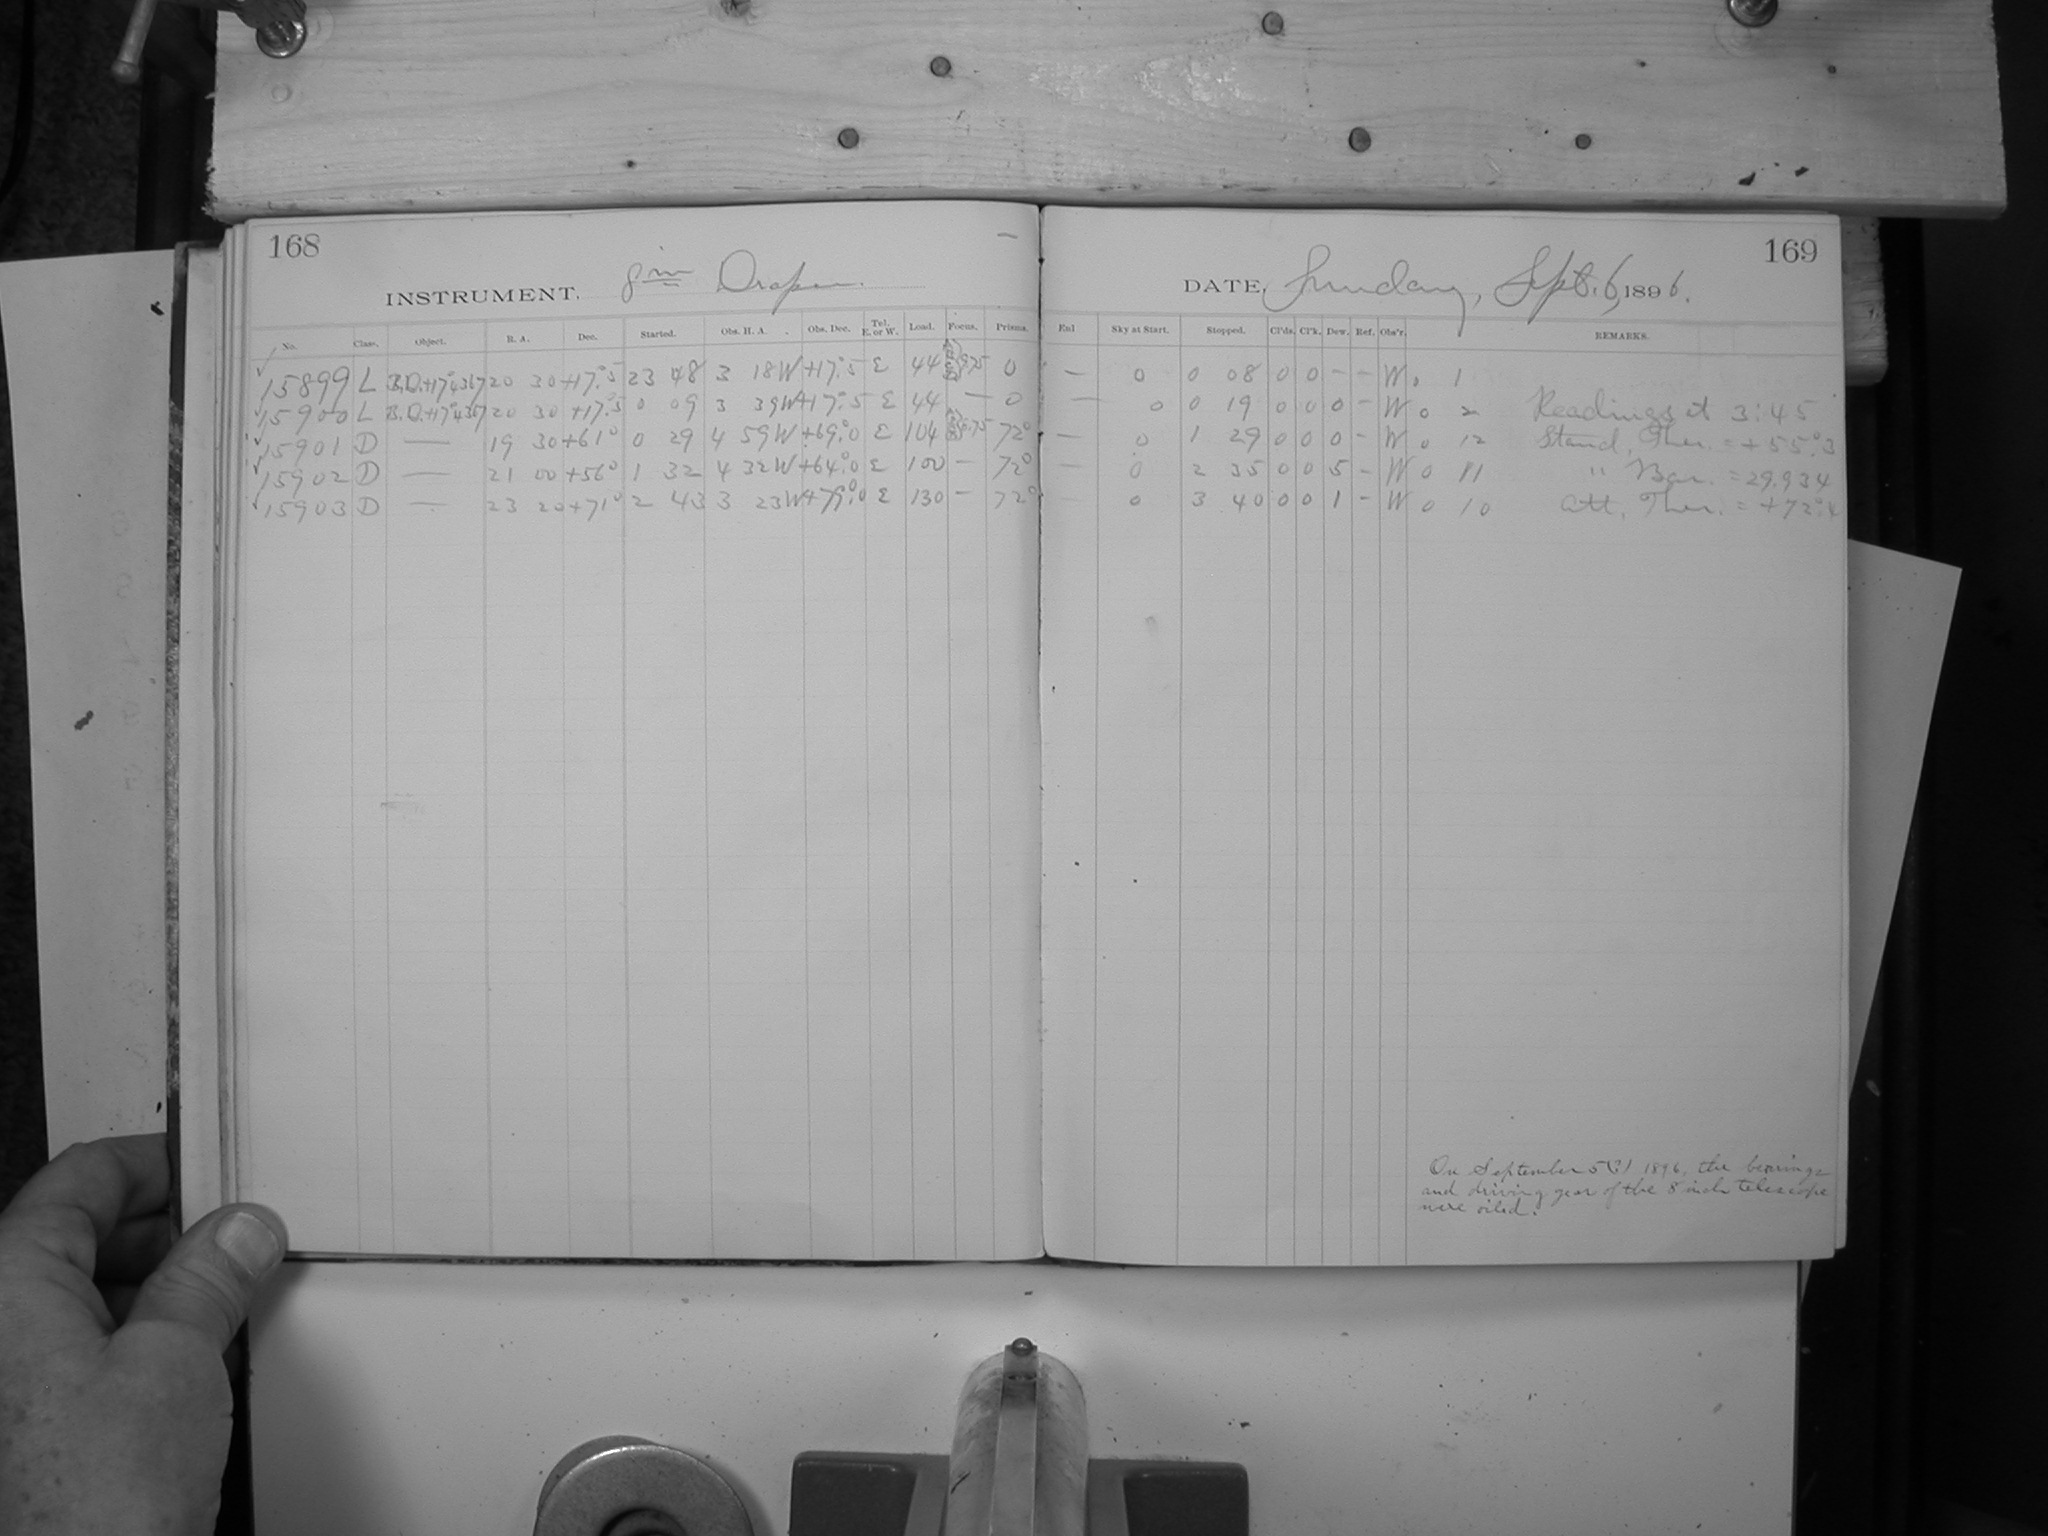 168
INSTRUMENT. 8 in Draper.
No. Class. Object. R. A. Dec. Started. Obs. H. A. Obs. Dec. Tel. E. or W. Load. Focus. Prisms.
15899 L B.D.+17°4367 20 30 +17°.5 23 48 3 18W +17°.5 E 44 9.75 0
15900 L B.D.+17°4367 20 30 +17°.5 0 09 3 39W +17°.5 E 44 — 0
15901 D — 19 30 +61° 0 29 4 59W +69°.0 E 104 72°
15902 D — 21 00 +56° 1 32 4 32W +64°.0 E 100 — 72°
15903 D — 23 20 +71° 2 43 3 23W +79°.0 E 130 — 72°
169
DATE, Sunday, Sept. 6, 1896.
Enl Sky at Start. Stopped. Cl'ds. Cl'k. Dew. Ref. Obs'r. REMARKS.
— 0 0 08 0 0 – – W 0 1
— 0 0 19 0 0 0 – W 0 2 Readings at 3:45
— 0 1 29 0 0 0 – W 0 12 Stand. Ther. = +55°.3
— 0 2 35 0 0 5 – W 0 11 " Bar. = 29.934
— 0 3 40 0 0 1 – W 0 10 Att. Ther. = +72°.4
On September 5(?) 1896, the bearings
and driving gear of the 8 inch telescope
were oiled.